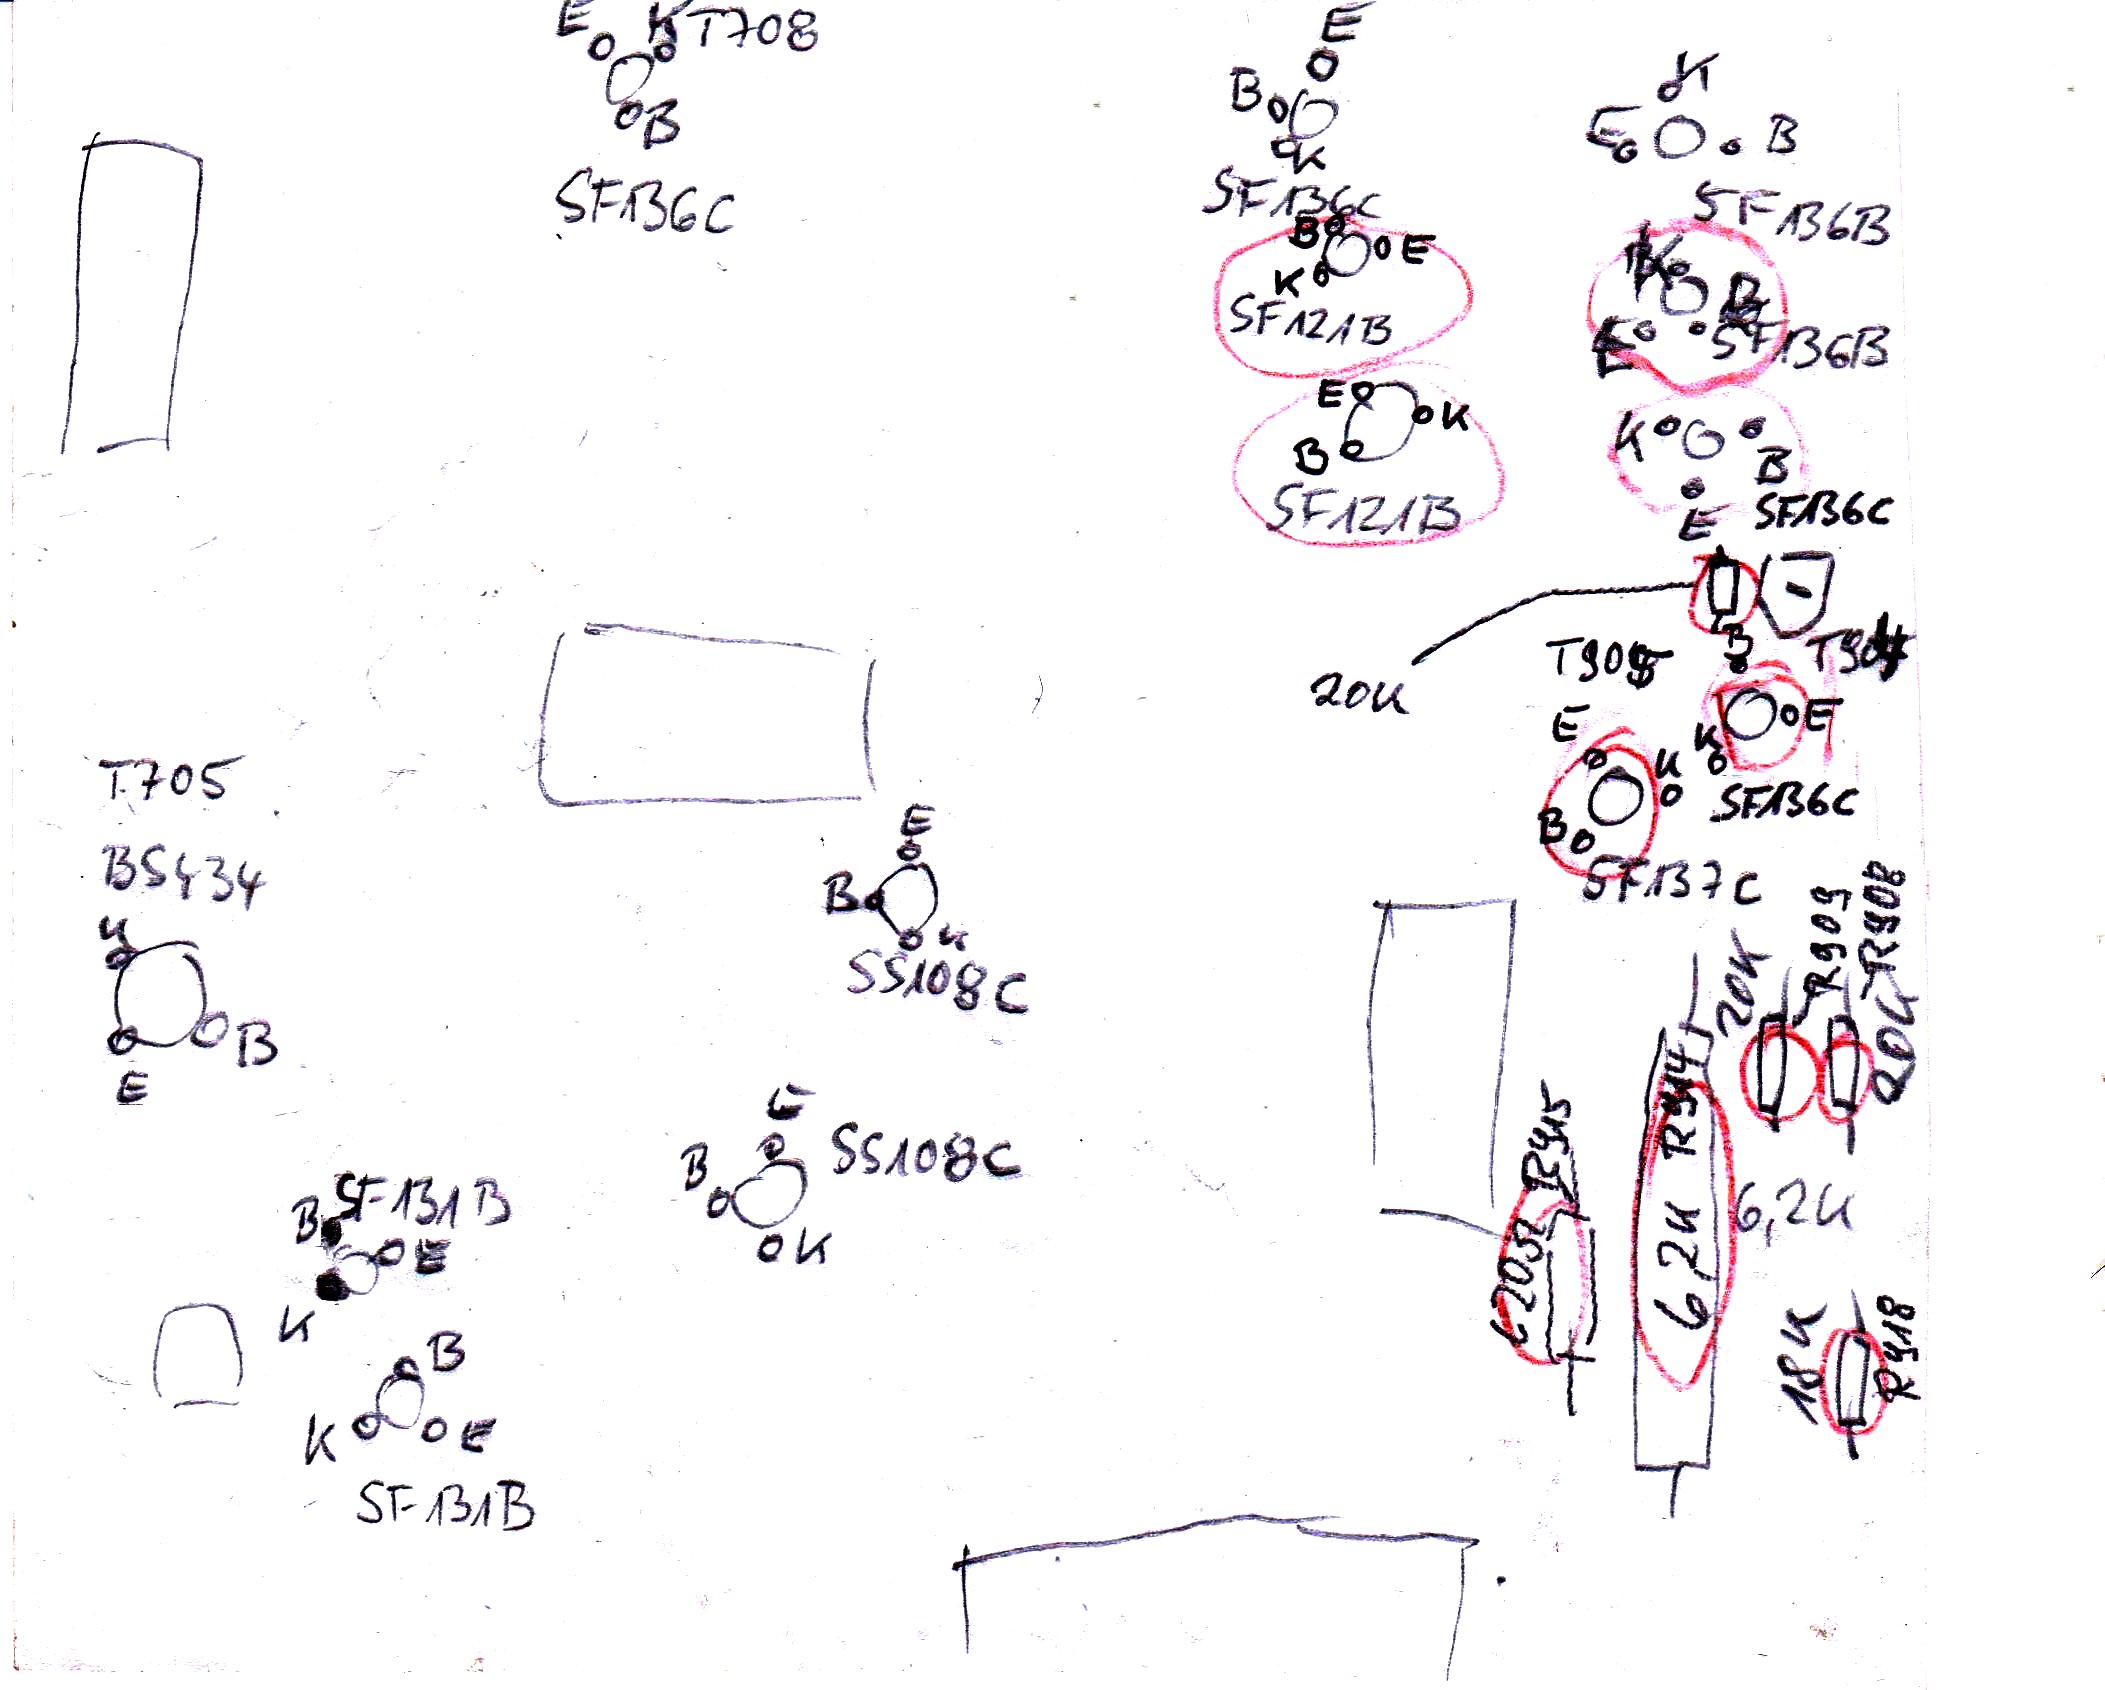 E K T708
B
SF136C
E
B
K
SF136C
K
E B
SF136B
B E
K
SF121B
K
B
E SF136B
E K
B
SF121B
K B
E SF136C
20K
T905
B T904
E
K
SF136C
E K
B
SF137C
T705
BS434
K
B
E
E
B
K
SS108C
E
B SS108C
K
SF131B
B
E
K
B
K E
SF131B
R909
R908
20K
20K
R914
6,2K
6,2K
R915
620Ω
18K
R918